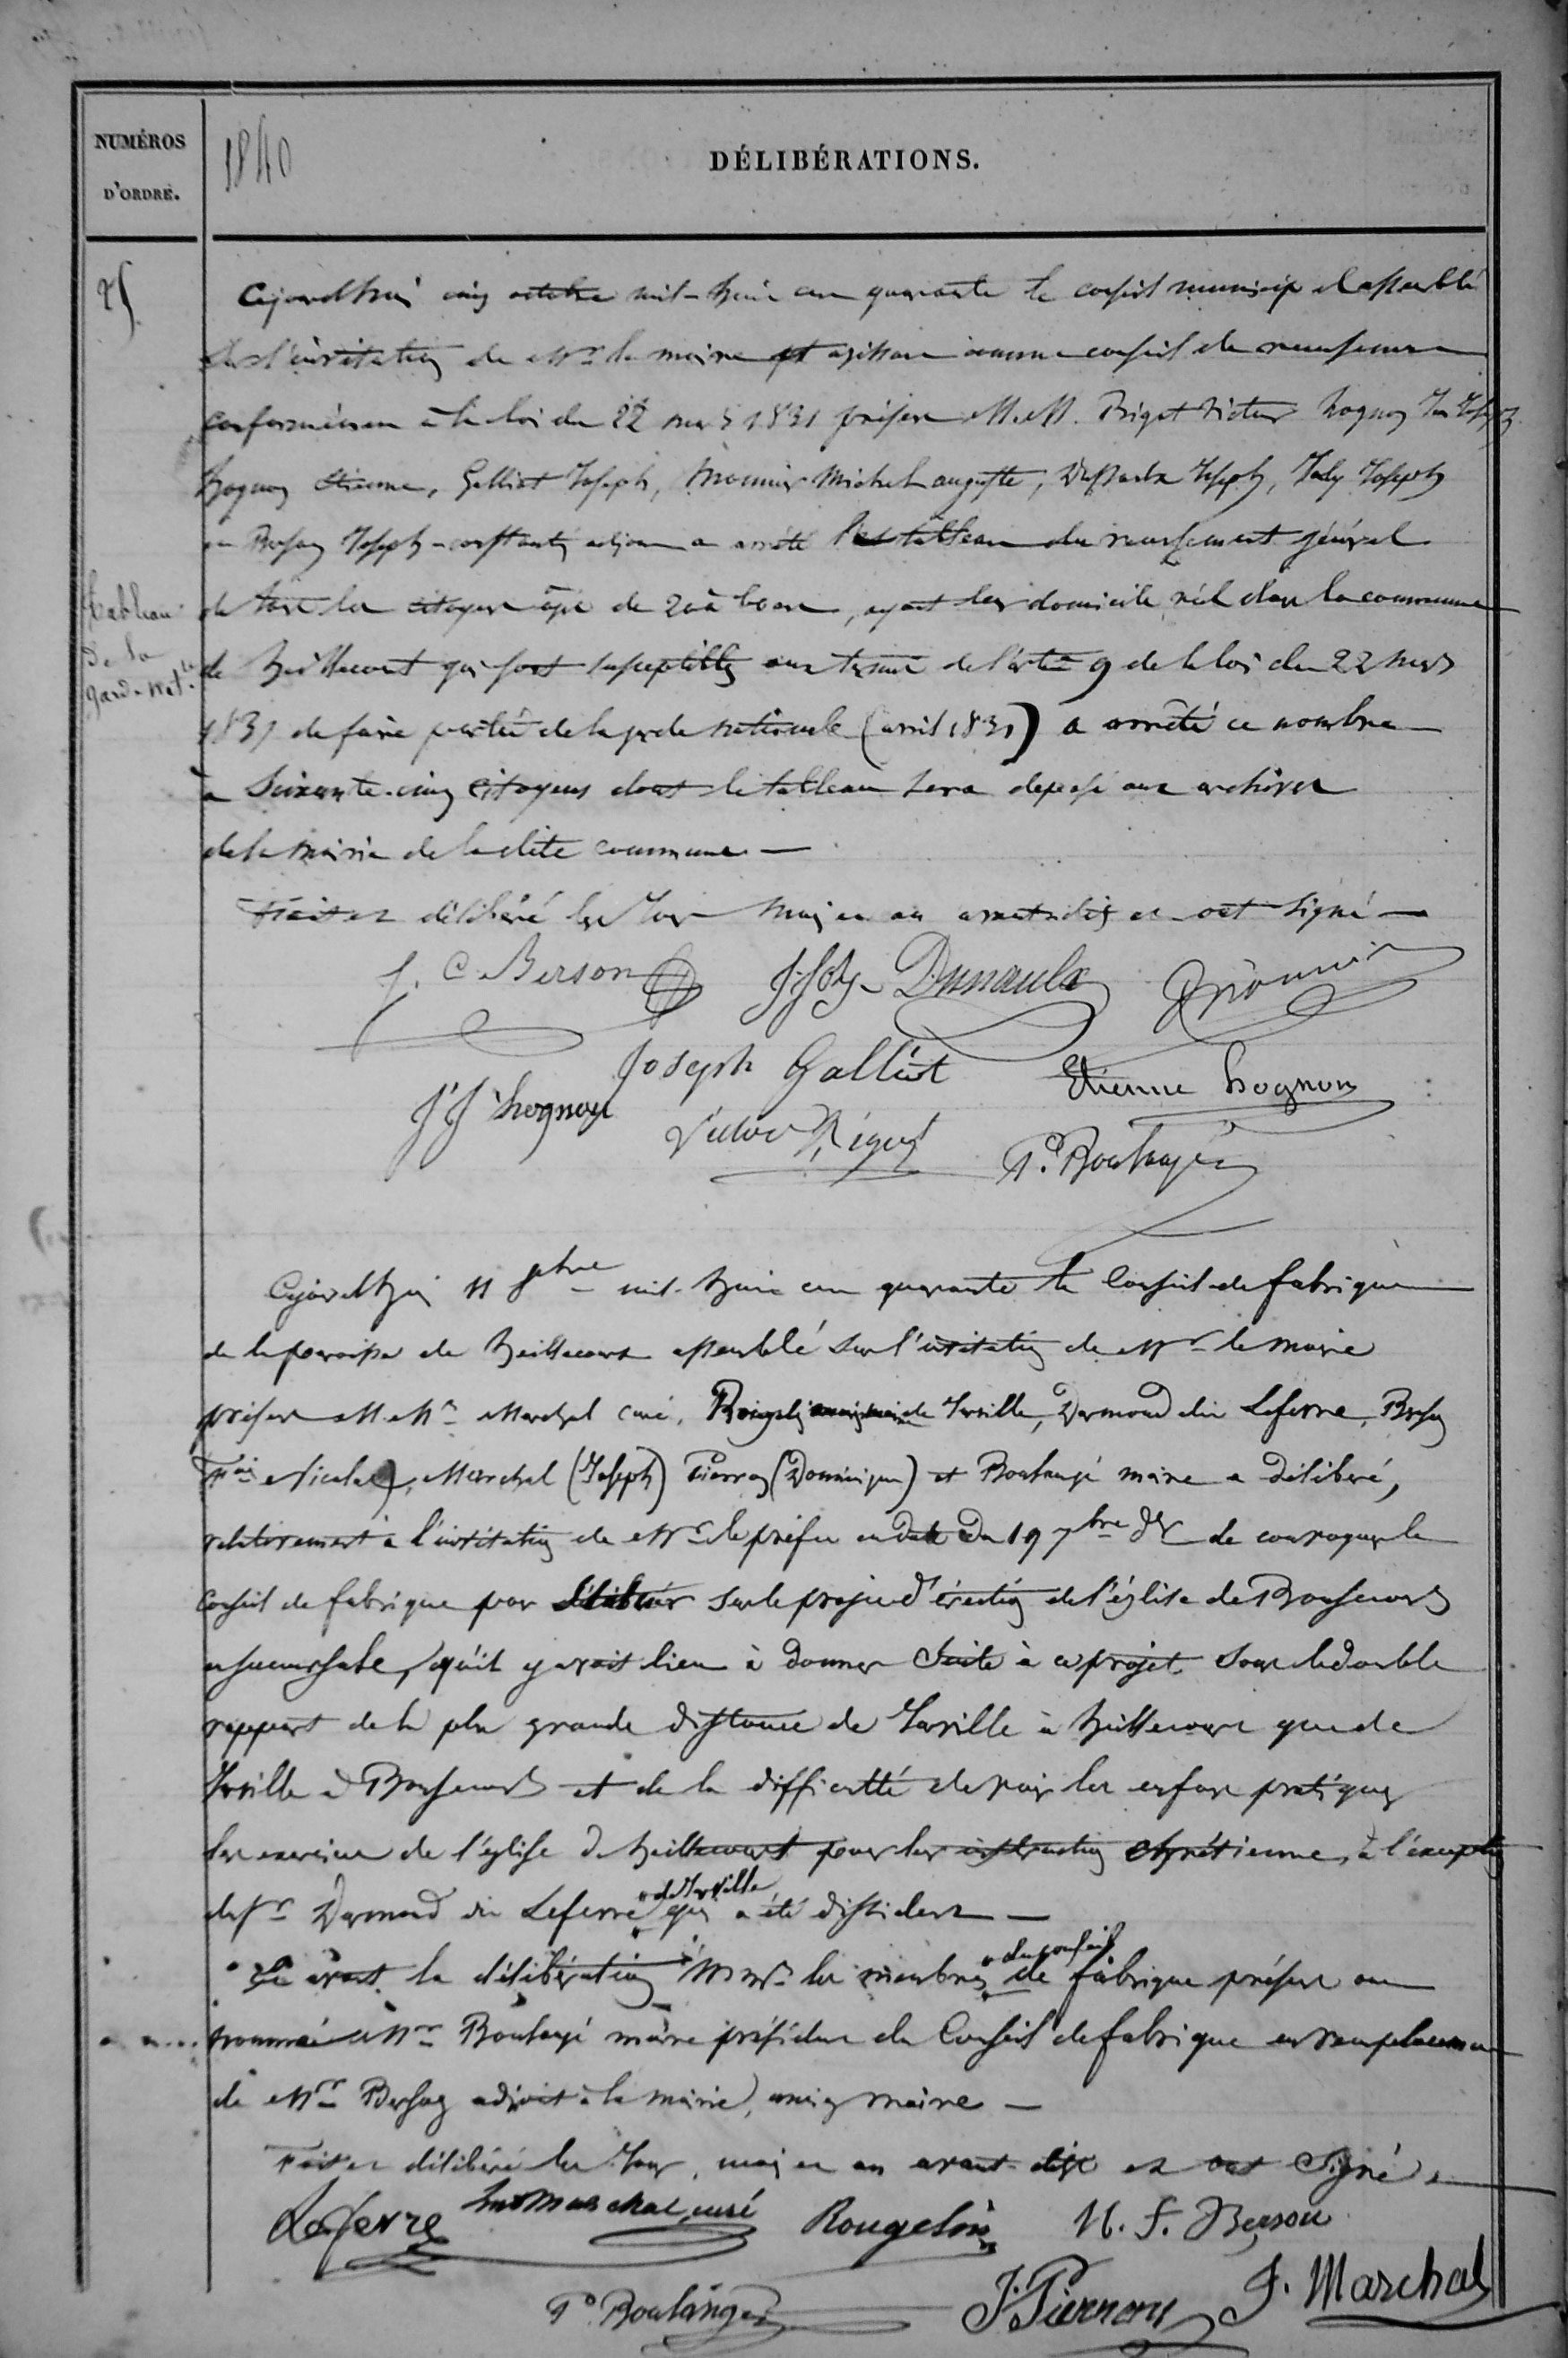 NUMÉROS
D'ORDRE.
1840
DÉLIBÉRATIONS.
25
Cejourd'hui cinq octobre mil-huit cent quarante le conseil municipal assemblé
sur l'invitation de Mr le maire et agissant comme conseil de recensement
conformément à la loi du 22 mars 1831 présents M.M. Rigot Victor hognon Jean Joseph
hognon Etienne, Galliot Joseph, Mounier Michel auguste, Joseph, Joly Joseph
et Berson Joseph-constantin adjoint a arrêté les tableau du recensement général
de tous les citoyens âgés de 20 à 60 ans, ayant leur domicile réel dans la commune
de heillecourt qui sont susceptibles aux termes de l'article 9 de la loi du 22 mars
1831 de faire partie de la garde nationale (avril 1831) a arrêté ce nombre
à Soixante-cinq citoyens dont le tableau sera déposé aux archives
de la Mairie de la dite commune —
Tableau
de la
gard. natle
Fait et délibéré les Jour mois et an avant dits et ont signé —
J. C. Berson J. Joly Mounier
Joseph Galliot Etienne hognon
J J hognon Victor Rigot
P. Boulangé
Cejourd'hui 11 8bre mil-huit cent quarante le Conseil de fabrique
de la paroisse de heillecourt assemblé sur l'invitation de Mr le maire
présents M.Mrs Marchal curé, Rougelin de Jarville, Darmond dit Lefevre, Berson
Fois Nicolas, Marchal (Joseph) Pierron (Dominique) et Boulangé maire a délibéré,
relativement à l'invitation de Mr le préfet en date du 19 7bre dr de convoquer le
Conseil de fabrique pour délibérer sur le projet d'érection de l'église de Bonsecours
en succursale, qu'il y avait lieu à donner Suite à ce projet sous le double
rapport de la plus grande distance de Jarville à heillecourt que de
Jarville à Bonsecours et de la difficulté de voir les enfans pratiquer
les exercices de l'église de heillecourt pour leur instruction chrétienne, à l'exception
de Sr Darmond dit Lefevre qui a été dissident —
de Jarville
avant la délibération MMrs les membres de fabrique présents ont
du conseil
nommé Mr Boulangé maire président du Conseil de fabrique en remplacement
de Mr Berson adjoint à la mairie, ancien maire —
Fait et délibéré les Jour, mois et an avant dits et ont Signé.
Lefevre Marchal, curé Rougelin N. F. Berson
P. Boulangé Pierron J. Marchal